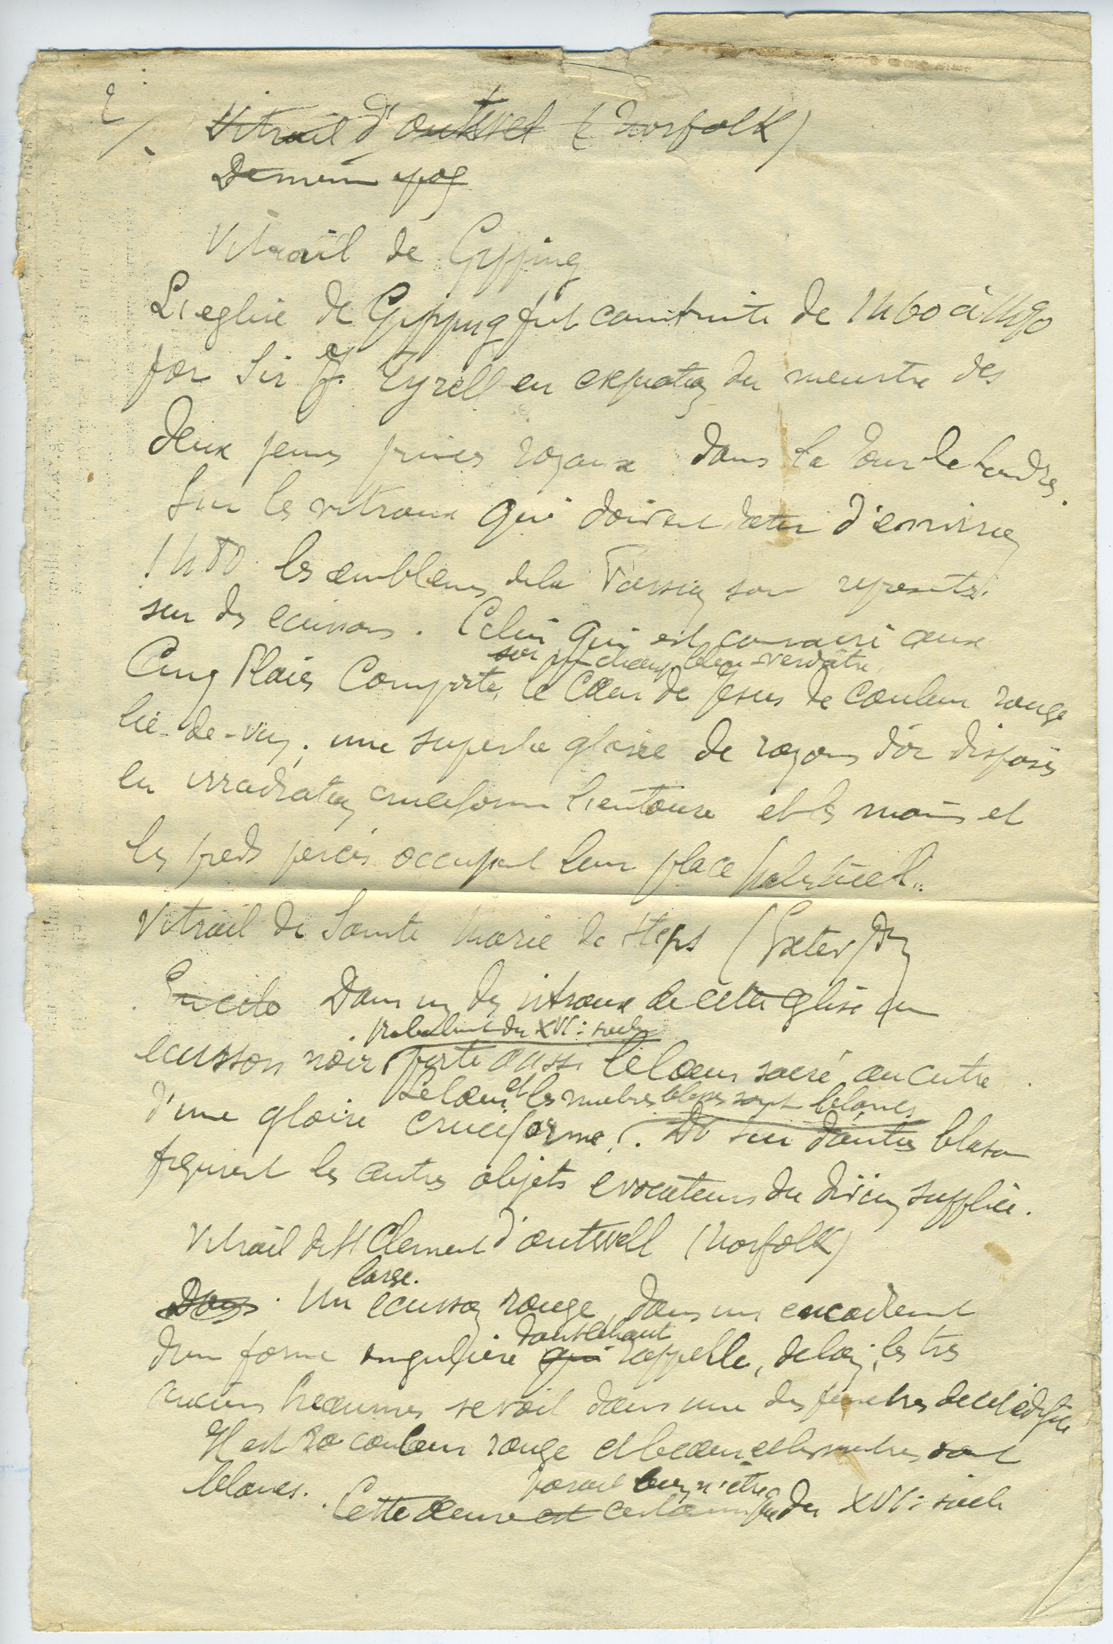 2/.
Vitrail d'Outwel (Norfolk)
Vitrail de Gipping
L'eglise de Gipping fut construite de 1460 à 1490
par Sir J. Tyrell en expiation du meurtre des
deux jeunes princes royaux dans la Tour de Londres.
Sur les vitraux qui doivent dater d'environ
1480 les emblemes de la Passion sont representés
sur des ecussons. Celui qui est consacré aux
sur champ bleu verdâtre
Cinq Plaies comporte, le Cœur de Jesus de couleur rouge
lie-de-vin; une superbe gloire de rayons d'or disposés
en irradiation cruciforme l'entoure et les mains et
les pieds percés occupent leur place habituelle.
Vitrail de Sainte Marie de Steps (Exter
Dans un des vitraux de cette eglise un
probablement du XVIe siecle
ecusson noir porte aussi le cœur sacré au centre
Le cœur et les membres blessés sont blancs
d'une gloire cruciforme. sur d'autres blason
figurent les autres objets evocateurs du divin supplice.
Vitrail de St Clement d'Outwell (Norfolk)
large
Dans. Un ecusson rouge, dans un encadrement
dont le haut
d'une forme singuliere qui rappelle, de loin, les tres
anciens heaumes se voit dans une des fenetres de cet edifice
Il est de couleur rouge et le cœur et les membres sont
blancs.
parait bien n'être
Cette œuvre est que du XVIe siecle